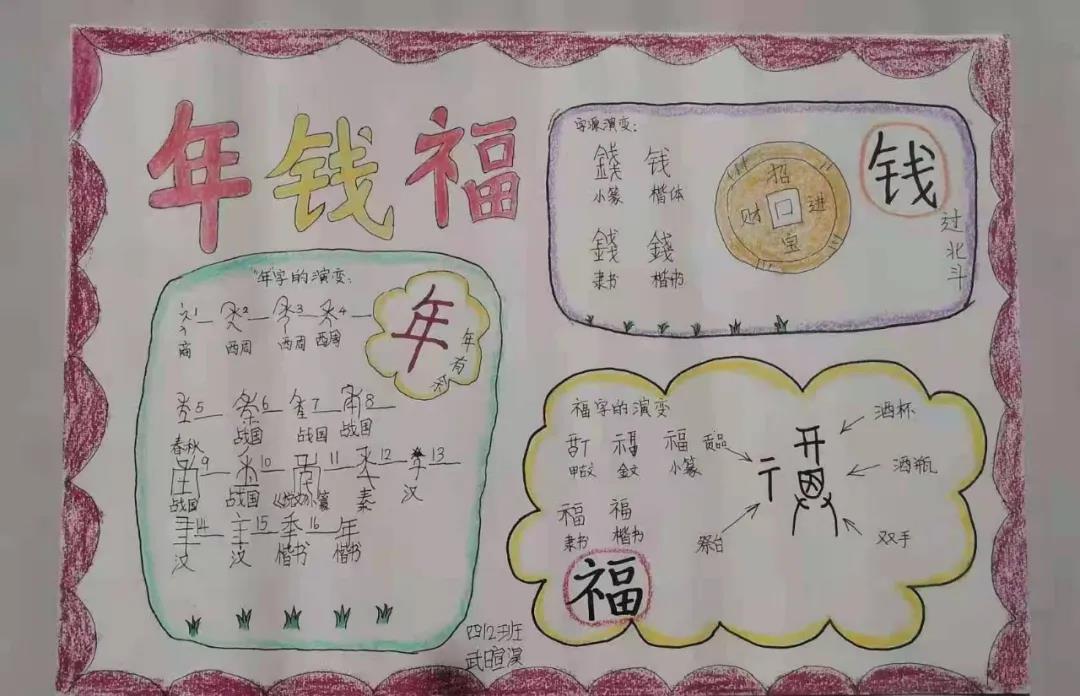 年钱福
字源演变：
錢 钱
小篆 楷体
錢 錢
隶书 楷书
招
财 进
宝
钱
过北斗
"年"字的演变：
1 2 3 4
商 西周 西周 西周
5 6 7 8
春秋 战国 战国 战国
9 10 11 12 13
战国 战国 《说文》小篆 秦 汉
14 15 16 年
汉 汉 楷书 楷书
年
年有
福字的演变
福 贡品
甲骨文 金文 小篆
福 福
隶书 楷书
酒杯
酒瓶
祭台 双手
福
四12班